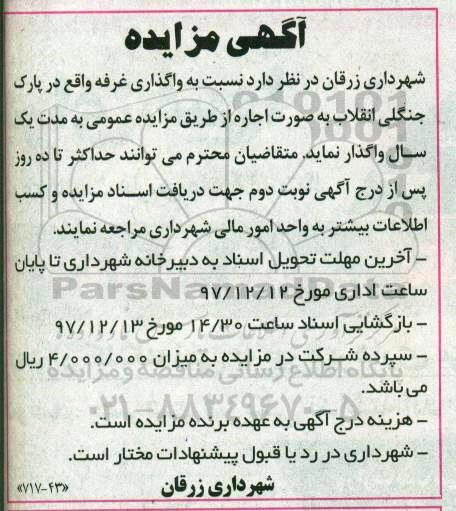 آگهی مزایده
شهرداری زرقان در نظر دارد نسبت به واگذاری غرفه واقع در پارک
جنگلی انقلاب به صورت اجاره از طریق مزایده عمومی به مدت یک
سال واگذار نماید. متقاضیان محترم می توانند حداکثر تا ده روز
پس از درج آگهی نوبت دوم جهت دریافت اسناد مزایده و کسب
اطلاعات بیشتر به واحد امور مالی شهرداری مراجعه نمایند.
- آخرین مهلت تحویل اسناد به دبیرخانه شهرداری تا پایان
ساعت اداری مورخ ۹۷/۱۲/۱۲
- بازگشایی اسناد ساعت ۱۴/۳۰ مورخ ۹۷/۱۲/۱۳
- سپرده شرکت در مزایده به میزان ۴/۰۰۰/۰۰۰ ریال
می باشد.
- هزینه درج آگهی به عهده برنده مزایده است.
- شهرداری در رد یا قبول پیشنهادات مختار است.
شهرداری زرقان
«۷۱۷-۴۳»
پایگاه اطلاع رسانی مناقصه و مزایده
۰۲۱-۸۸۳۴۹۶۷۰-۵